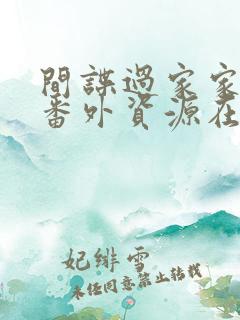 間諜過家家
番外資源在
妃緋雪
未經同意禁止轉載